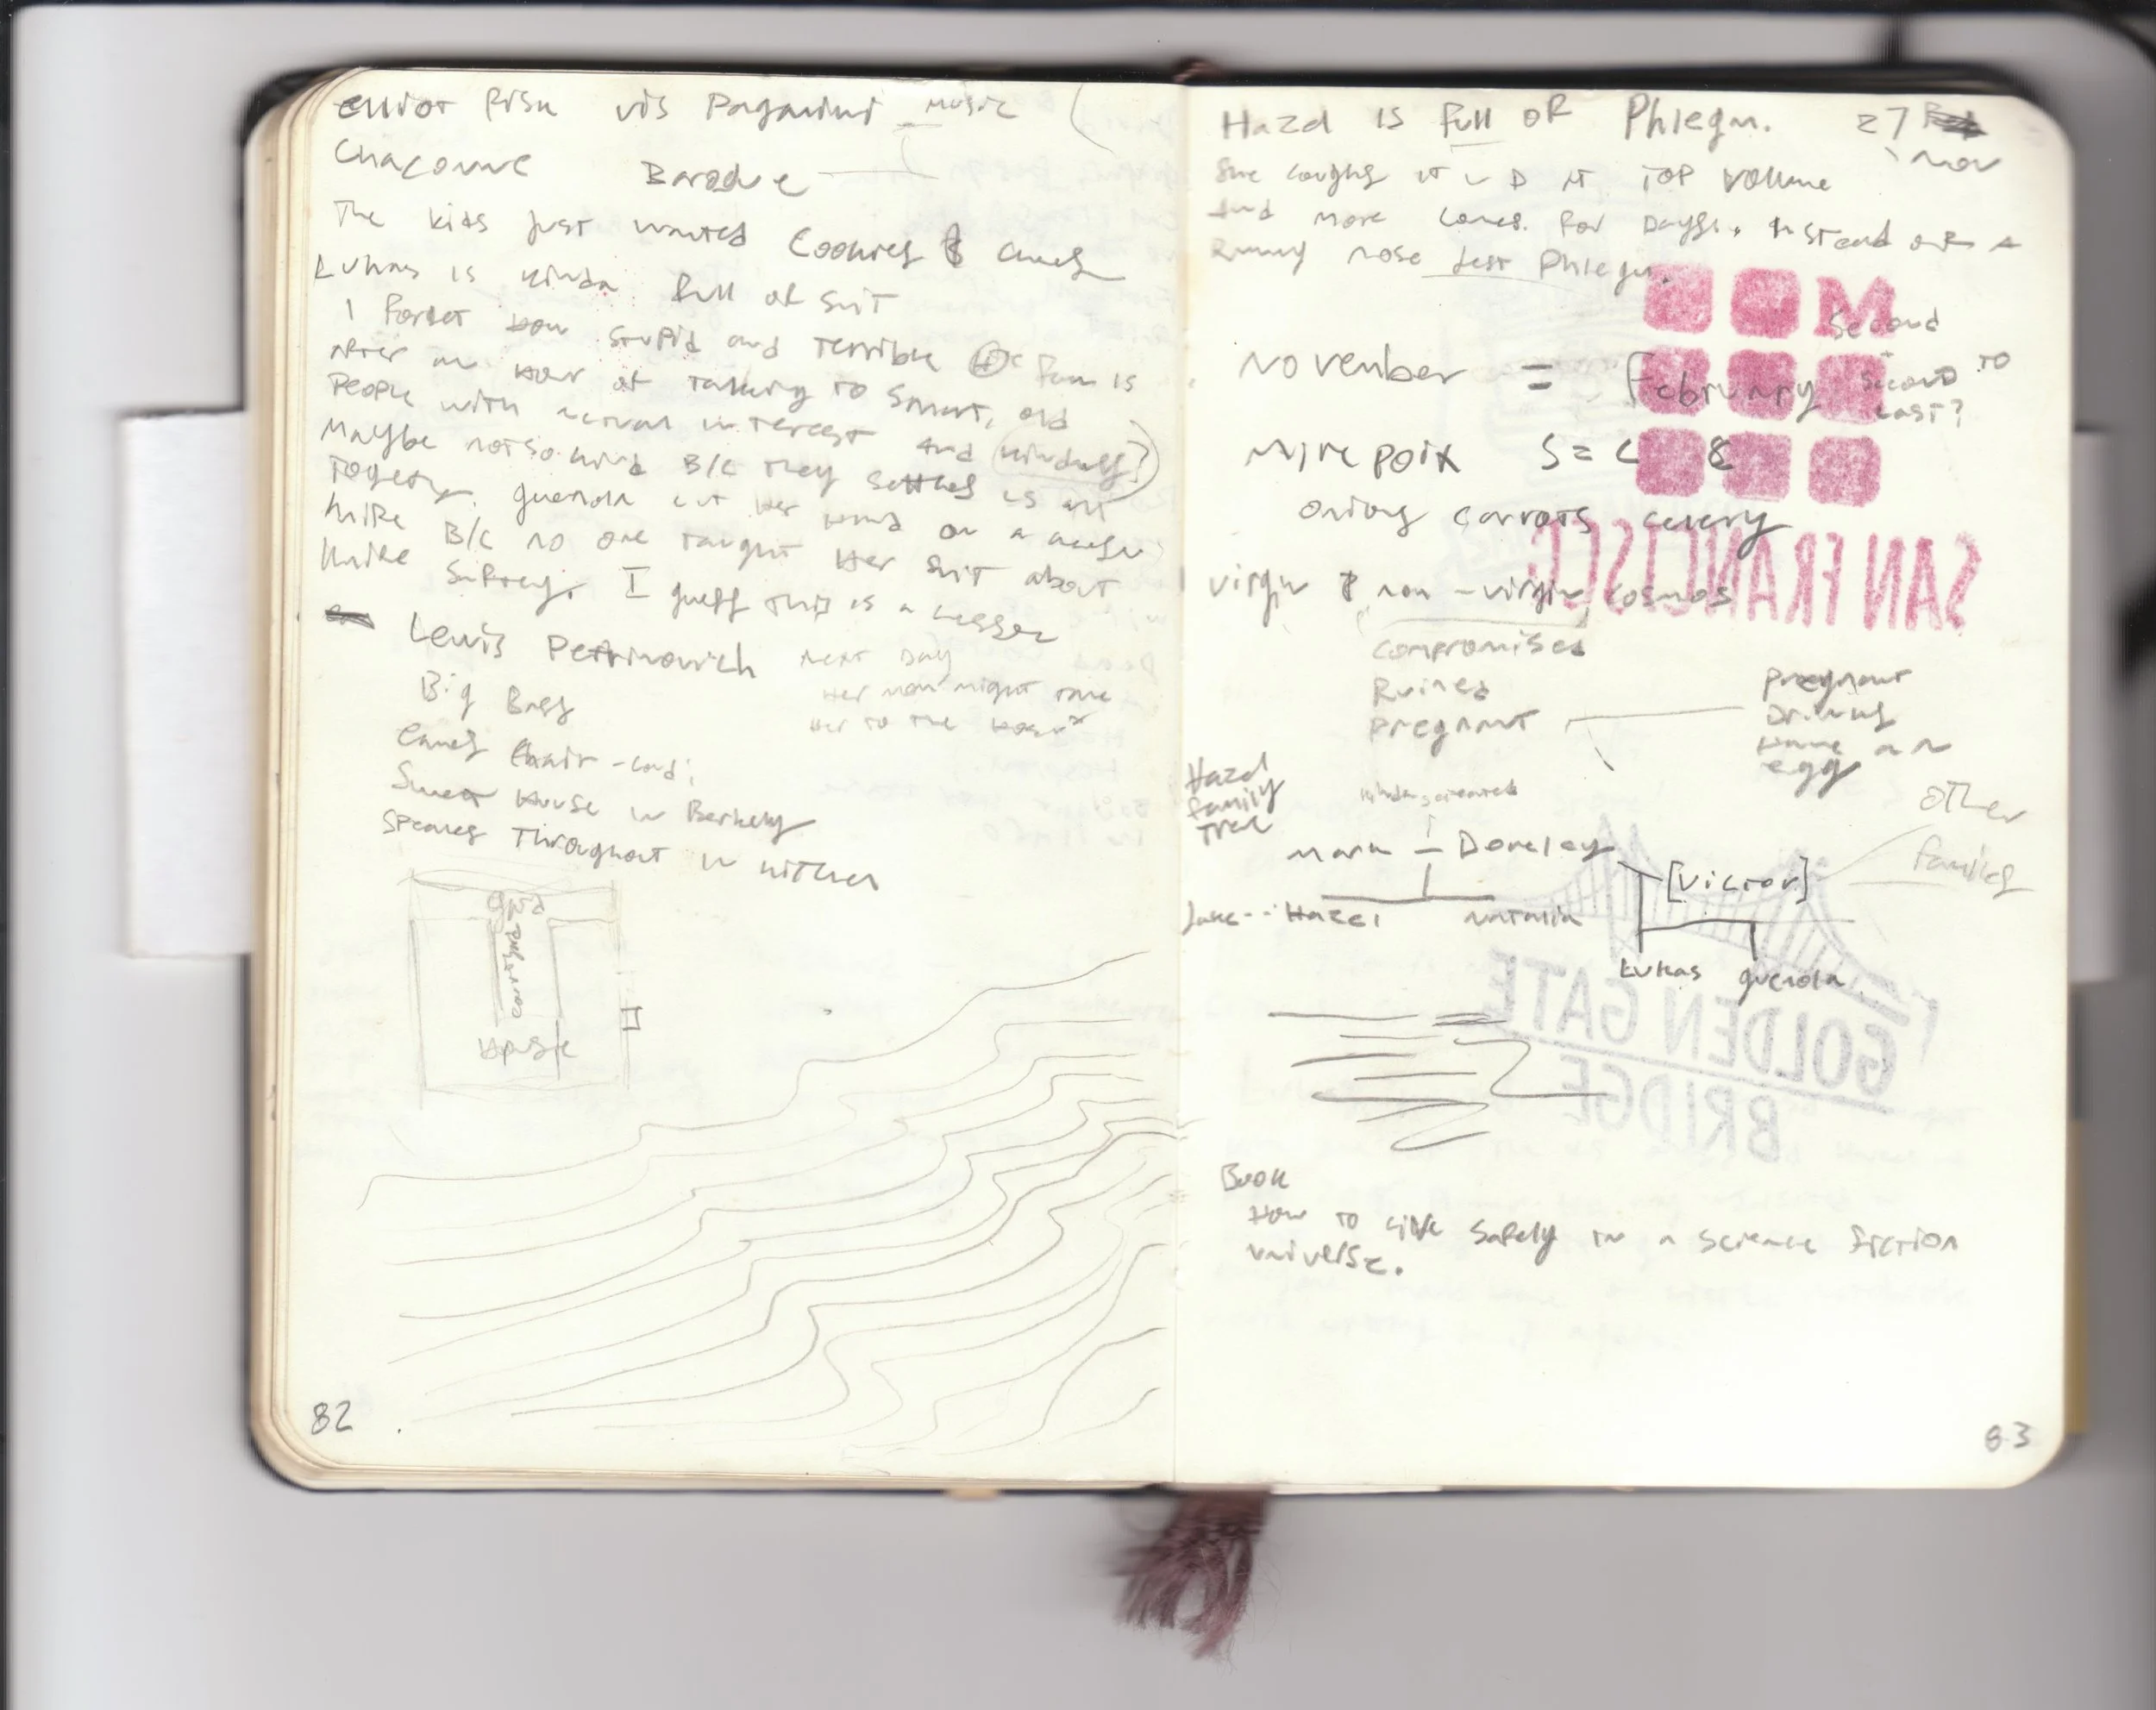 Elliot Fisk vis Paganini music
Chaconne Baroque
The kids just wanted cookies &
Lukas is kinda full of shit
I forget how stupid and terrible fam is
after an hour of talking to smart, old
people with actual interest and kindness?
Maybe not so kind B/c they settled is all
together. Guenola cut her hand on a
knife B/c no one taught her shit about
knife safety. I guess this is a lesser
Lewis Petrinovich
Big Bass
next day
her mom might take
her to the
Canes hair-cond.
Sweet House in Berkeley
Speakers throughout in kitchen
courtyard
House
82
Hazel is full of Phlegm. 27
Nov
She coughs it up at top volume
and more comes. For days. Instead of a
runny nose just Phlegm.
M
Second
November = February
Second to
last?
Mirepoix S = C &
onions carrots celery
SAN FRANCISCO
virgin & non-virgin cosmos
compromised
Ruined
Pregnant
Pregnant
Drinks
have an
egg
Hazel
family
Tree
other
families
Mark - Doreley
[Victor]
Jake -- Hazel Natalia
Lukas Guenola
GOLDEN GATE
BRIDGE
Book
How to live safely in a science fiction
universe.
83